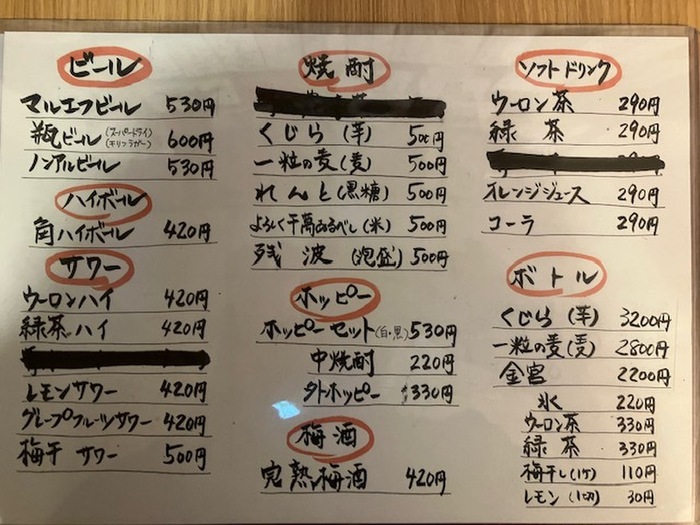 ビール
マルエフビール 530円
瓶ビール (スーパードライ)(キリンラガー) 600円
ノンアルビール 530円
ハイボール
角ハイボール 420円
サワー
ウーロンハイ 420円
緑茶ハイ 420円
レモンサワー 420円
グレープフルーツサワー 420円
梅干サワー 500円
焼酎
くじら (芋) 500円
一粒の麦 (麦) 500円
れんと (黒糖) 500円
よろしく千萬あるべし (米) 500円
残波 (泡盛) 500円
ホッピー
ホッピーセット (白・黒) 530円
中焼酎 220円
外ホッピー 330円
梅酒
完熟梅酒 420円
ソフトドリンク
ウーロン茶 290円
緑茶 290円
オレンジジュース 290円
コーラ 290円
ボトル
くじら (芋) 3200円
一粒の麦 (麦) 2800円
金宮 2200円
氷 220円
ウーロン茶 330円
緑茶 330円
梅干し (1ケ) 110円
レモン (1切) 30円